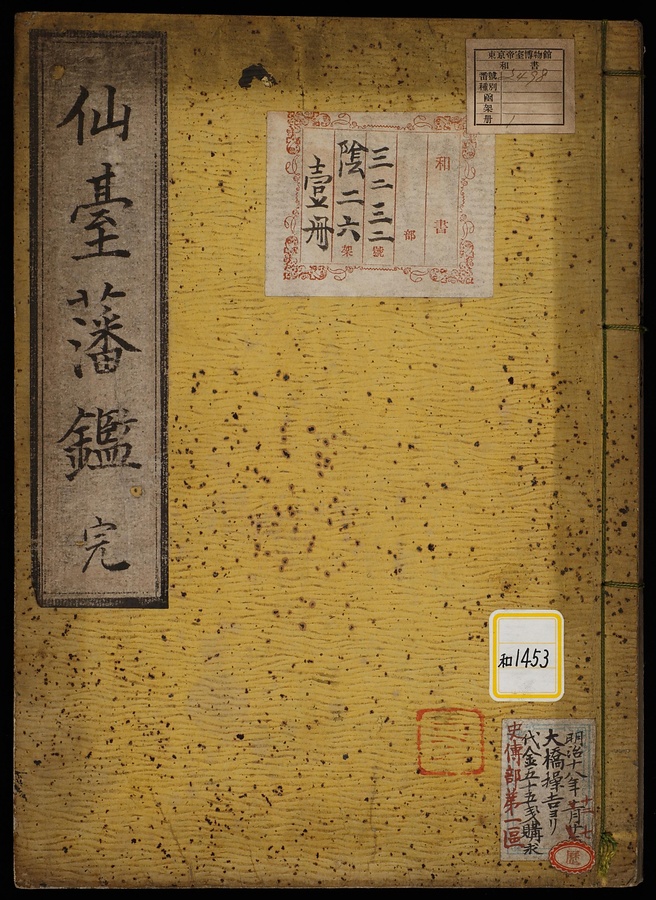 仙臺藩鑑 完
東京帝室博物館
和書
番號 2498
種別
凾
架
册 1
和書
部
三二三二號
陰二六架
壹册
和1453
明治十八年
大橋操吉ヨリ
代金五十五戋購求
史傳部第二區